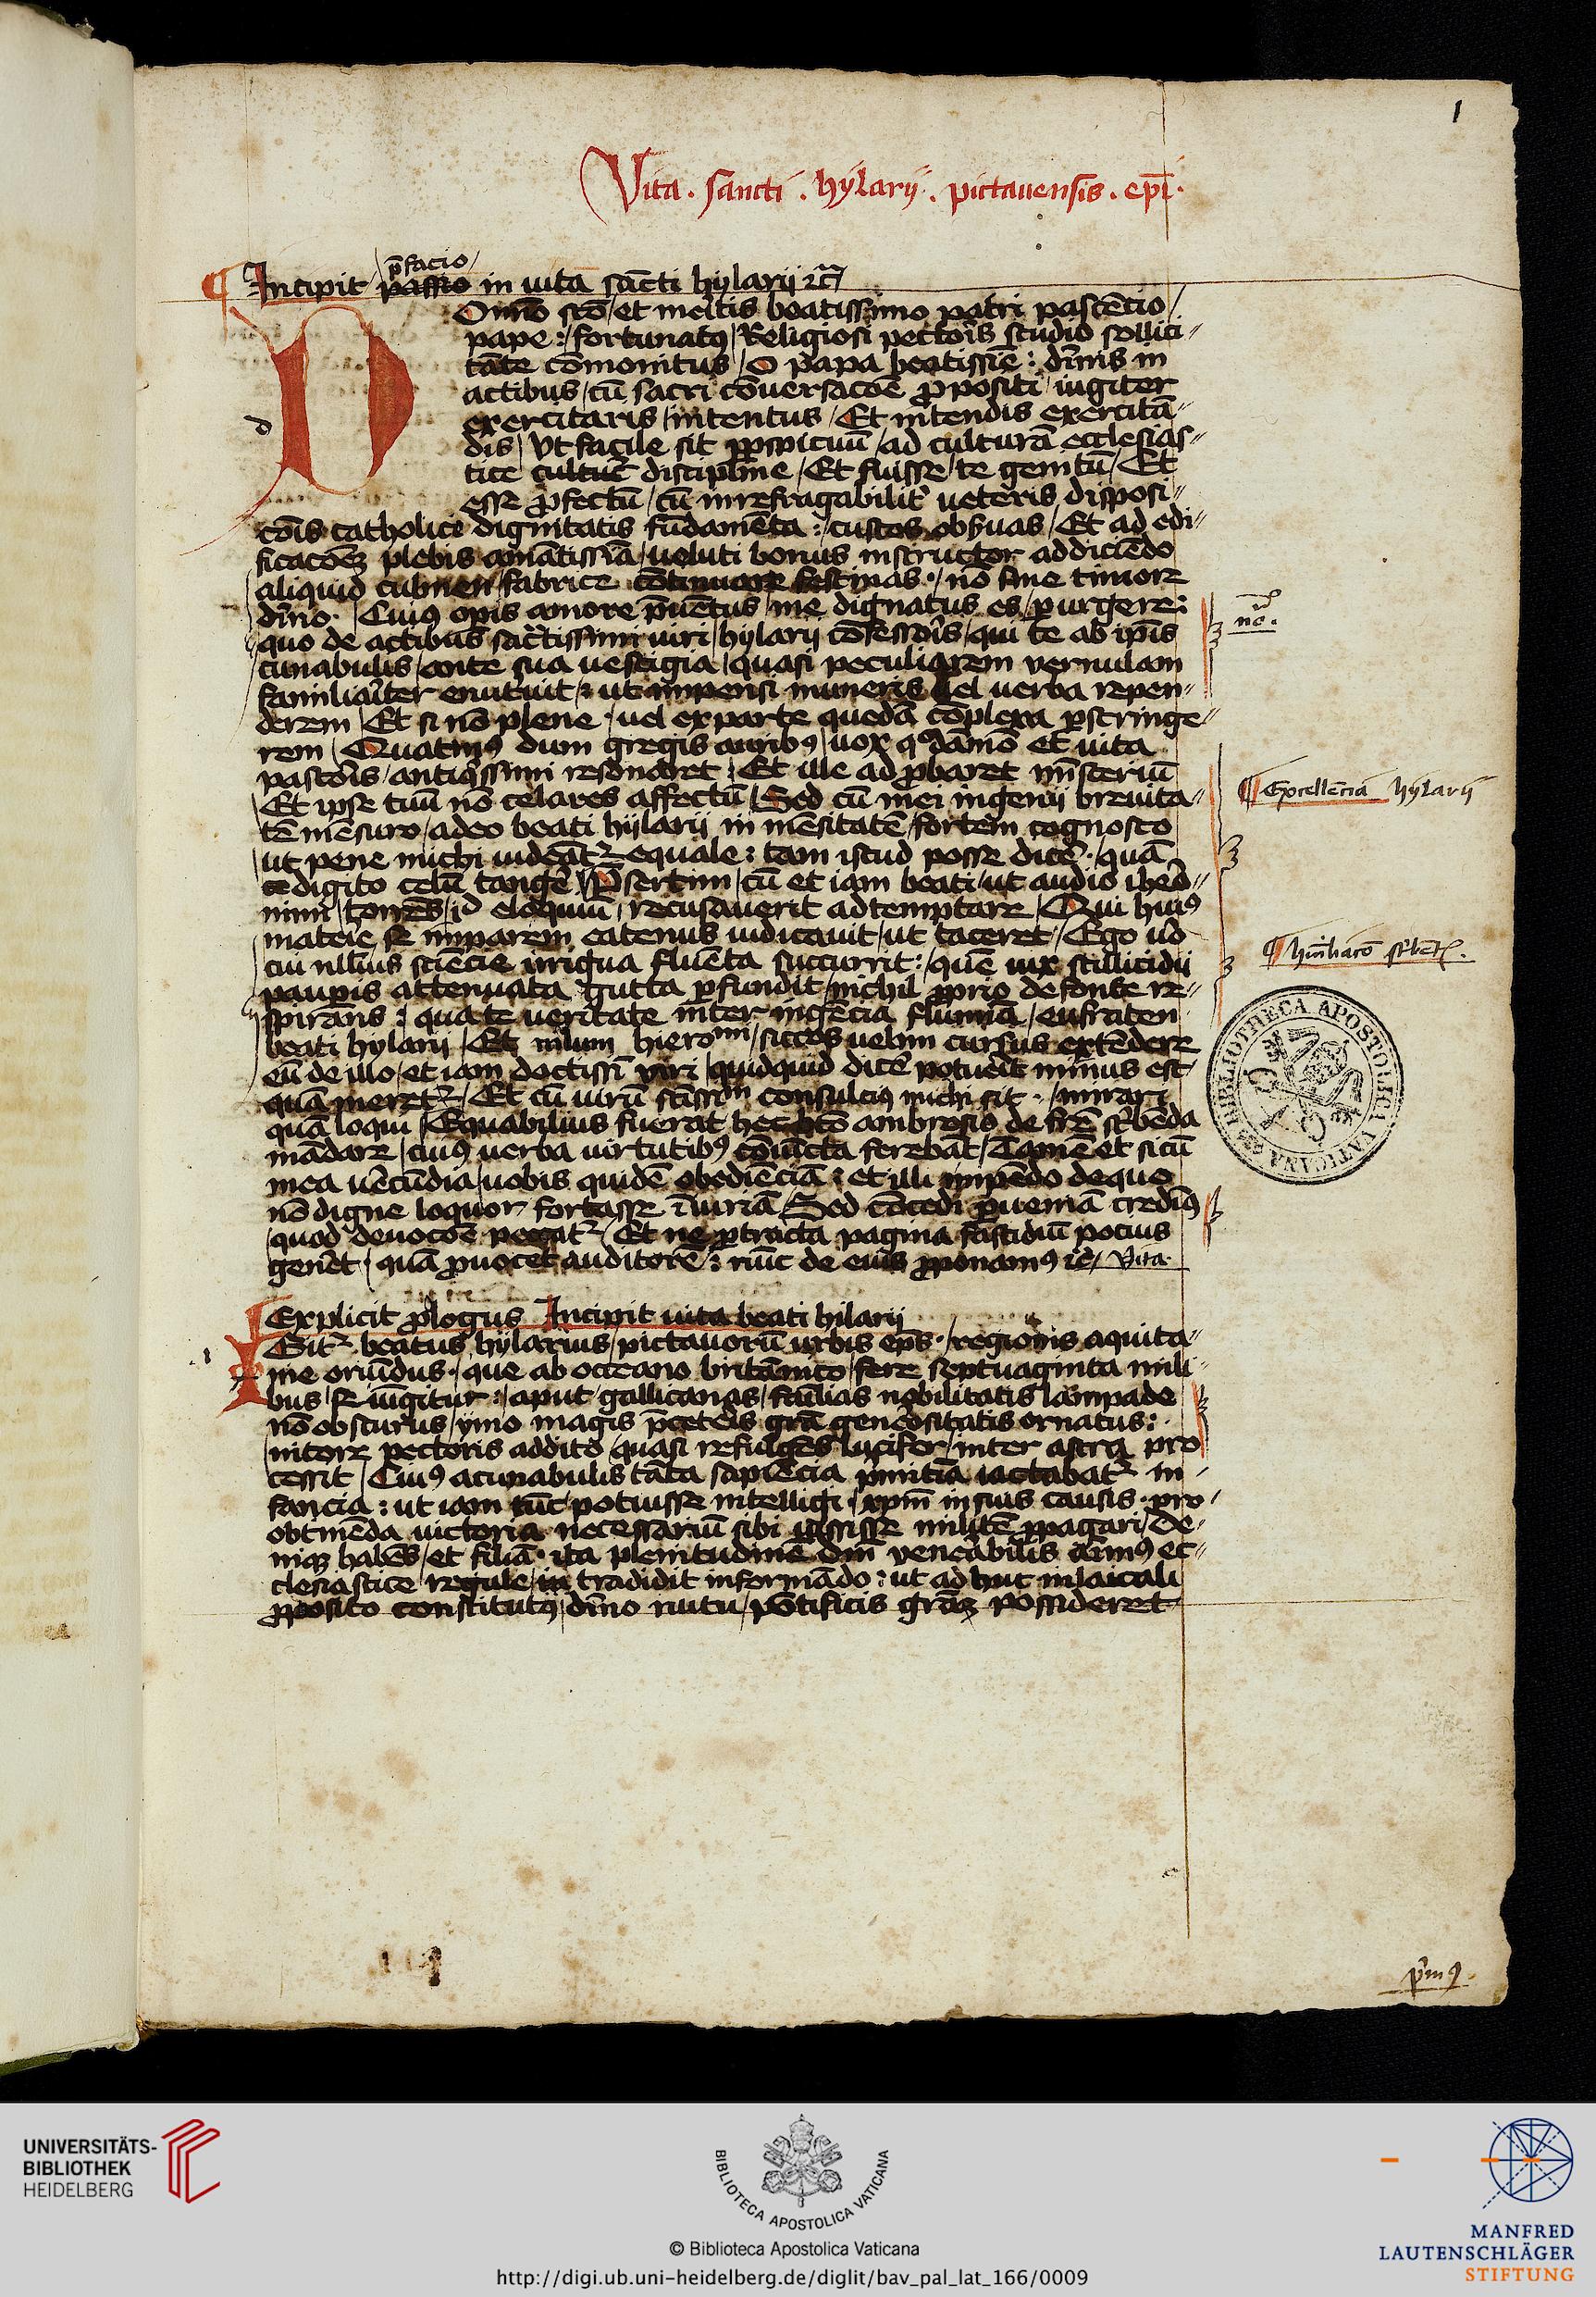 1
Vita . sancti . hylarij . pictauensis . ep̄i .
p̄facio
Incipit passio in uitā sācti hylarij ⁊c̄
Domīo sc̄o et meritis beatissimo patri pascēcio
pape : fortunatꝰ Religiosi pectoris studio sollici
tāte cōmonitus O papa beatissīe : diuīnis in
actibus cū sacri cōuersacōe ꝓpositi iugiter
exercitaris intentus Et intendis exercitā
dis Vt facile sit ꝑspicuū ad culturā ecclesias
tice cultur̄ discipline Et fuisse te genitū Et
esse ꝓfectū cū irrefragabilit̄ ueteris disposi
cōis catholice dignitatis fūdamēta : custos obseruas Et ad edi
ficacōeꝫ plebis amātissīa ueluti bonus instructor addiciēdo
aliquid culmen fabrice cōtinuare festinas . nō sine timore
diuīo . Cuiꝰ opis amore p̄uētus me dignatus es ꝑurgere :
quo de actibus sāctissimi uiri hylarij cōfessoris qui te ab ip̄is
cunabulis ante sua uestigia quasi peculiarem vernulam
familiariter enutriuit : ut impensi muneris uel uerba repen
derem Et si nō plene . uel ex parte quedā cōplexa ꝑstringe
rem Quatinꝰ dum gregis auribꝰ uox quodāmō et uita
pastoris antiquissimi resonaret . Et ille ad ꝓbaret misteriū
Et ipse tuū nō celares affectū Sed cū mei ingenij breuita
tē mēsuro adeo beati hylarij in mēsitatē fortem cognosco
ut pene michi uideāt̄ equale : tam istud posse dicē . quā
digito celū tangē P̄sertim cū et iam beati ut audio iherō
nimi torrēs id eloquiū recusauerit ad temptare Qui huiꝰ
materie se imparem eatenus iudicauit ut taceret Ego uō
cui nulliꝰ sciēcie irrigua fluēta succurrit : quē uix stillicidij
pauꝑis attenuata gutta ꝑfundit nichil ꝓprio de fonte re
spirans : qua te ueritate inter ingēcia flumīa eufraten
beati hylarij Et nilum hieronimi siccos uelim cursus extēdere
cū de illo et iam doctissī viri quidquid dicē potuerīt minus est
quā meret̄ Et cū uirū sc̄issim consulciꝰ michi sit . mirari
quā loqui Equabilius fuerat hec bt̄o ambrosio de fr̄e sc̄bēda
mādare cuiꝰ uerba uirtutibꝰ cōiūcta ferebāt Tamē et sicū
mea uērcūdia uobis quidē obediēciā : et illi impēdo de quo
nō digne loquor fortasse iniuriā Sed cōcedi ꝑ ueniā credimꝰ
quod deuocōe peccat̄ Et ne ꝑtracta pagina fastidiū pocius
generet . quā ꝓuocet auditorē : nūc de eius ꝓponamꝰ ⁊c̄ Vita .
Explicit ꝓlogus Incipit uita beati hilarij
Igit̄ beatus hylarius pictauorū urbis ep̄s . regionis aquita
nie oriūdus . que ab occeano britānico fere septuaginta mili
bus se iūgitur : aput gallicanas familias nobilitatis lampade
nō obscurus ymo magis p̄ceteris gr̄a generositatis ornatus :
nitore pectoris addito quasi refulgēs lucifer inter astra pro
cessit Cuiꝰ a cunabulis tāta sapiēcia p̄mitiua lactabat̄ in
fancia : ut iam tūc potuisse intelligi . xp̄m in suis causis . pro
obtinēda uictoria necessariū sibi iussisse militē ꝓpagari De
niqꝫ habēs et filiā . ita plenitudinē dn̄i venerabilis animꝰ ec
clesiastice regule tradidit informādo : ut adhuc in laicali
ꝓposito constitutꝰ diuīo nutu pōtificis grāꝫ possideret
d
nō .
Excellēcia hylarij
humiliacō scribent̄ .
i
p̄mꝰ .
BIBLIOTHECA APOSTOLICA VATICANA
UNIVERSITÄTS-
BIBLIOTHEK
HEIDELBERG
BIBLIOTECA APOSTOLICA VATICANA
© Biblioteca Apostolica Vaticana
http://digi.ub.uni-heidelberg.de/diglit/bav_pal_lat_166/0009
MANFRED
LAUTENSCHLÄGER
STIFTUNG